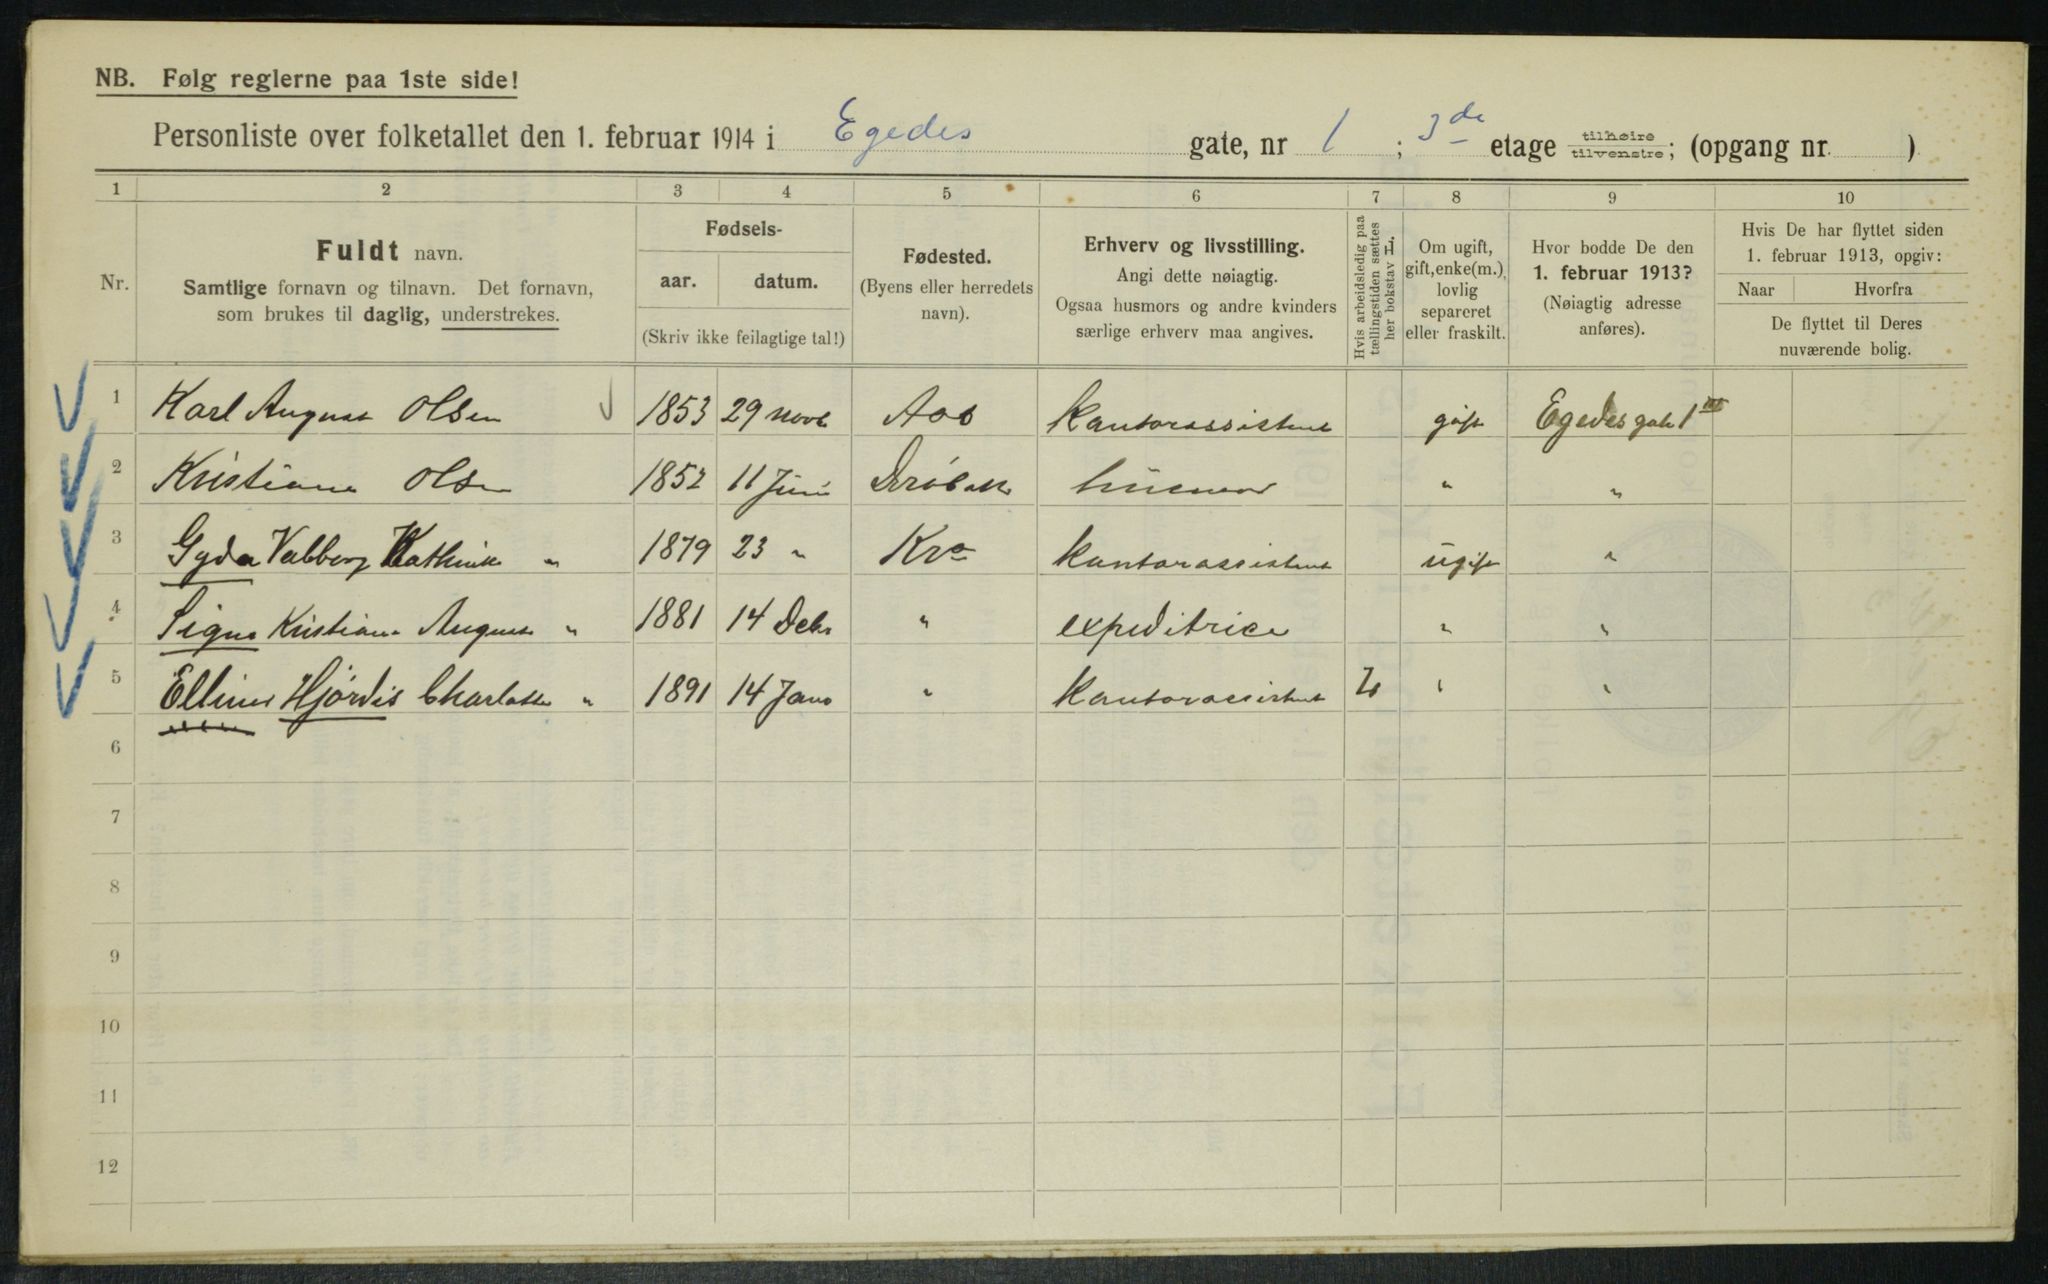 NB. Følg reglerne paa 1ste side!
Personliste over folketallet den 1. februar 1914 i Egedes gate, nr 1 ; 3de etage tilhøire tilvenstre; (opgang nr. )
1 2 3 4 5 6 7 8 9 10
Nr.
Fuldt navn.
Samtlige fornavn og tilnavn. Det fornavn,
som brukes til daglig, understrekes.
Fødsels-
aar. datum.
(Skriv ikke feilagtige tal!)
Fødested.
(Byens eller herredets
navn).
Erhverv og livsstilling.
Angi dette nøiagtig.
Ogsaa husmors og andre kvinders
særlige erhverv maa angives.
Hvis arbeidsledig paa
tællingstiden sættes
her bokstav L.
Om ugift,
gift, enke(m.),
lovlig
separeret
eller fraskilt.
Hvor bodde De den
1. februar 1913?
(Nøiagtig adresse
anføres).
Hvis De har flyttet siden
1. februar 1913, opgiv:
Naar Hvorfra
De flyttet til Deres
nuværende bolig.
1 Karl August Olsen 1853 29 Novb Aas Kontorassistent gift Egedes gate 1 III
2 Kristiane Olsen 1852 11 Juni Drøbak husmor " "
3 Gyda Valborg Kathinke " 1879 23 " Kra Kontorassistent ugift "
4 Signe Kristiane Auguste " 1881 14 Debr " expeditrice " "
5 Elline Hjørdis Charlotte " 1891 14 Janr " Kontorassistent L " "
6
7
8
9
10
11
12